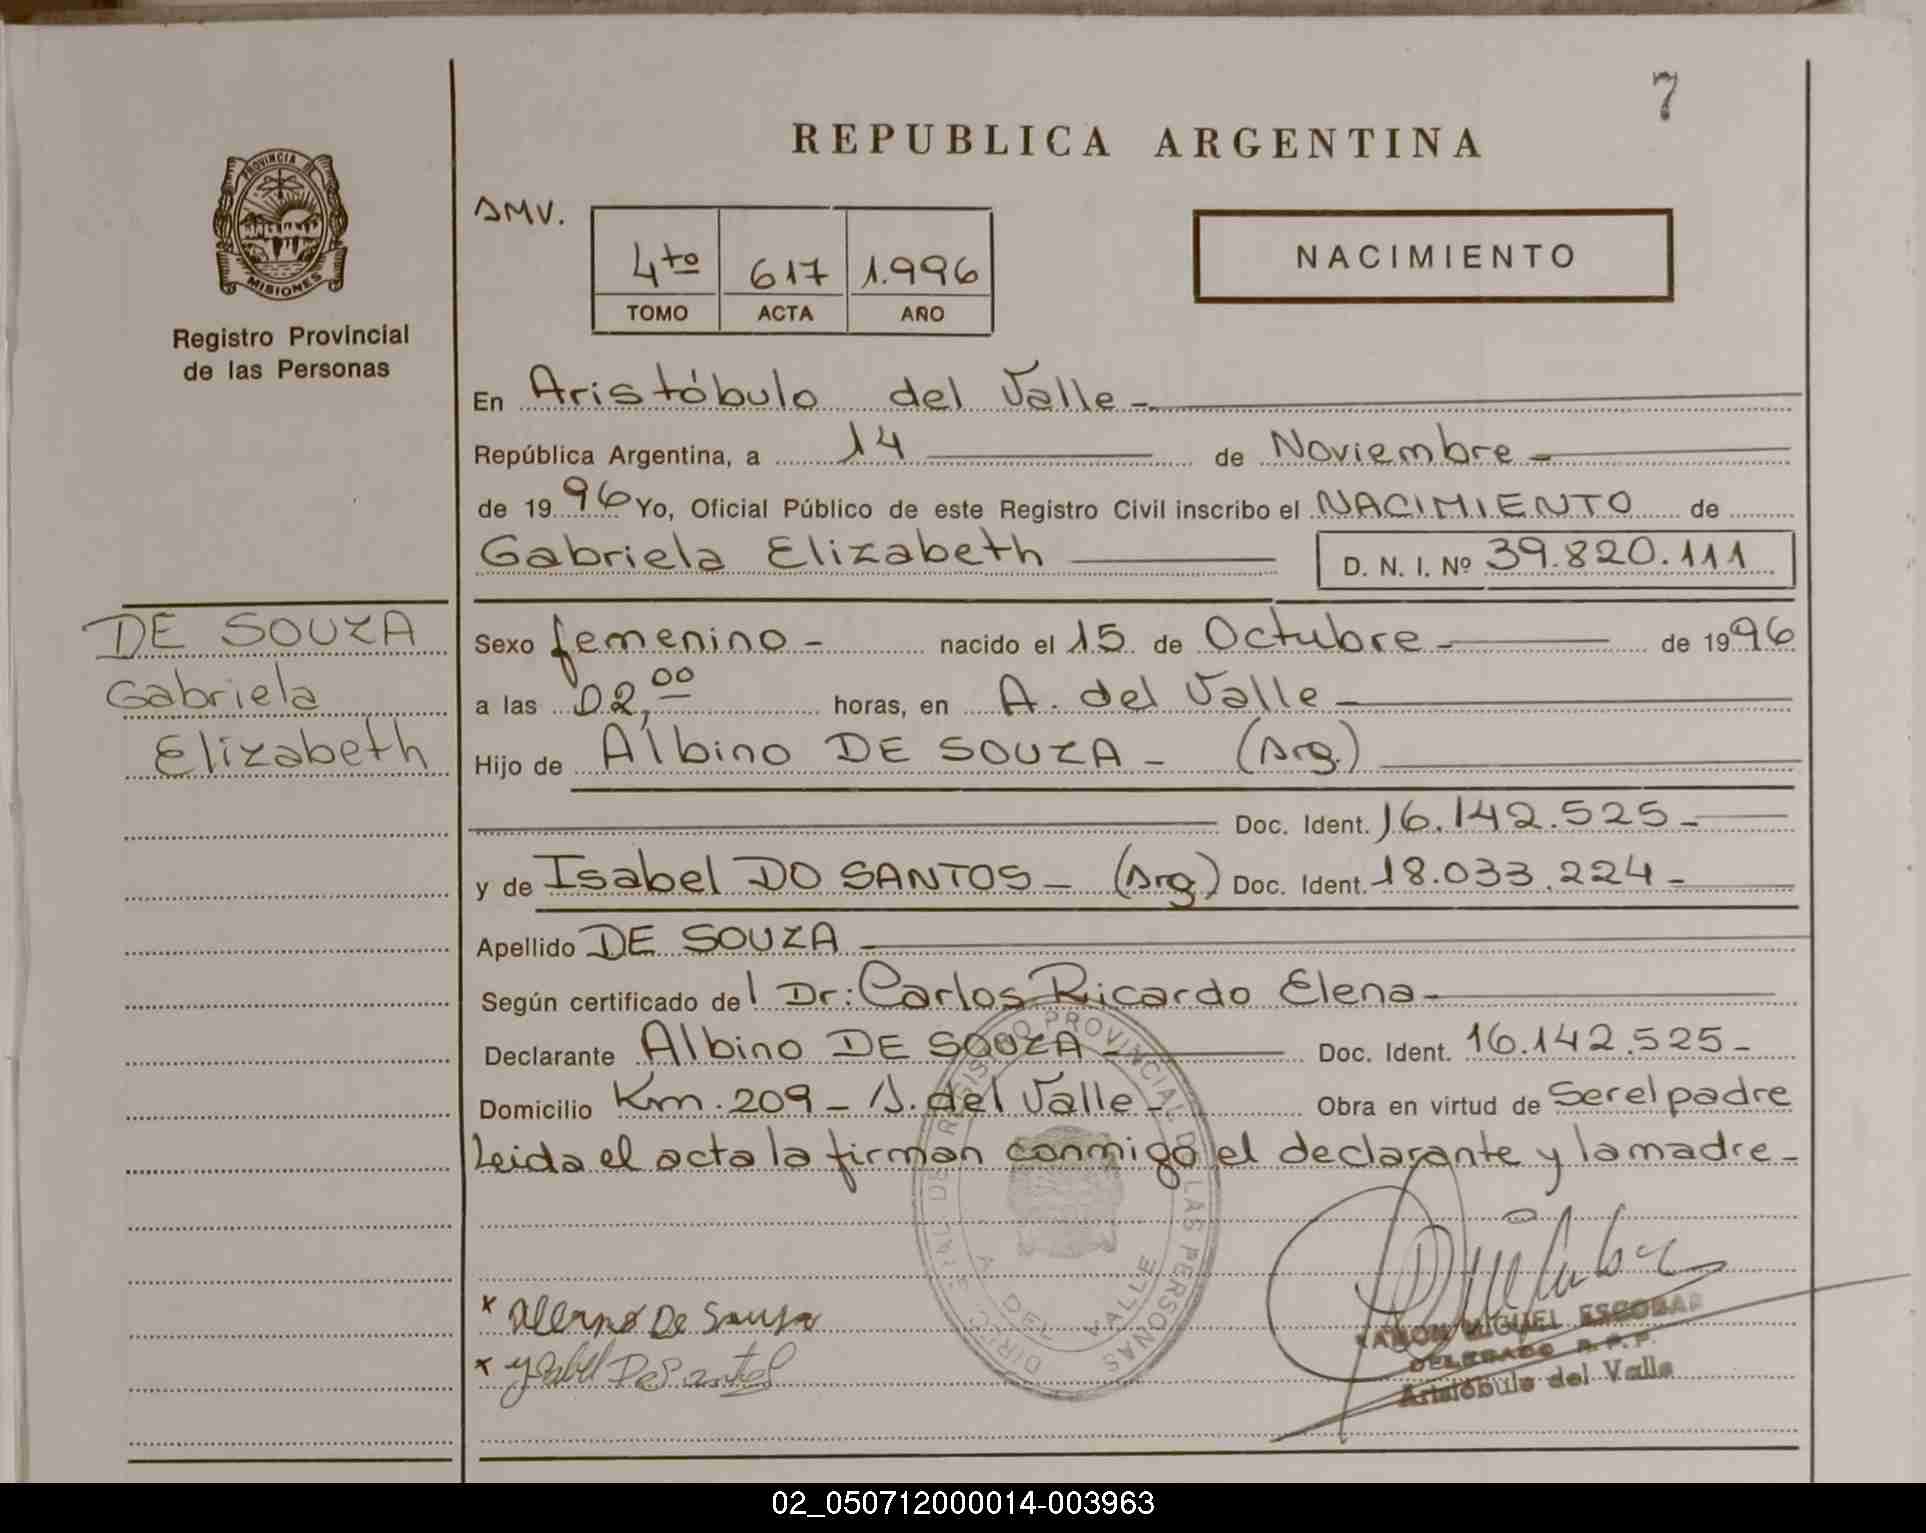 7
REPUBLICA ARGENTINA
PROVINCIA DE
MISIONES
Registro Provincial
de las Personas
AMV.
4to 617 1.996
TOMO ACTA AÑO
NACIMIENTO
En Aristóbulo del Valle -
República Argentina, a 14 de Noviembre -
de 1996 Yo, Oficial Público de este Registro Civil inscribo el NACIMIENTO de
Gabriela Elizabeth D. N. I. Nº 39.820.111
DE SOUZA
Gabriela
Elizabeth
Sexo femenino - nacido el 15 de Octubre - de 1996
a las 02,00 horas, en A. del Valle -
Hijo de Albino DE SOUZA - (Arg.)
Doc. Ident. 16.142.525 -
y de Isabel DO SANTOS - (Arg) Doc. Ident. 18.033.224 -
Apellido DE SOUZA -
Según certificado del Dr: Carlos Ricardo Elena -
Declarante Albino DE SOUZA - Doc. Ident. 16.142.525 -
Domicilio Km. 209 - A. del Valle - Obra en virtud de Ser el padre
Leida el acta la firman conmigo el declarante y la madre -
DIREC. GRAL. DEL REGISTRO PROVINCIAL DE LAS PERSONAS
A. DEL VALLE
x De Sousa
x Ysabel
RAMON MIGUEL ESCOBAR
DELEGADO R.P.P.
Aristóbulo del Valle
02_050712000014-003963